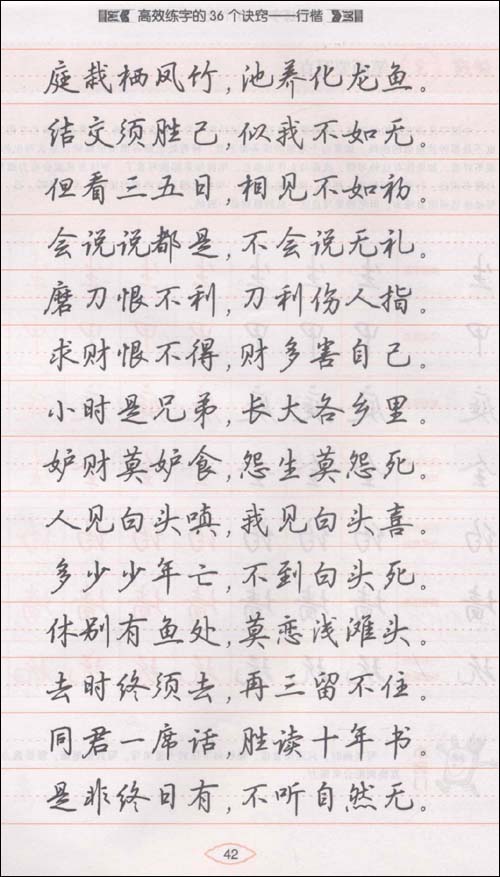 高效练字的36个诀窍——行楷
庭栽栖凤竹,池养化龙鱼。
结交须胜己,似我不如无。
但看三五日,相见不如初。
会说说都是,不会说无礼。
磨刀恨不利,刀利伤人指。
求财恨不得,财多害自己。
小时是兄弟,长大各乡里。
妒财莫妒食,怨生莫怨死。
人见白头嗔,我见白头喜。
多少少年亡,不到白头死。
休别有鱼处,莫恋浅滩头。
去时终须去,再三留不住。
同君一席话,胜读十年书。
是非终日有,不听自然无。
42